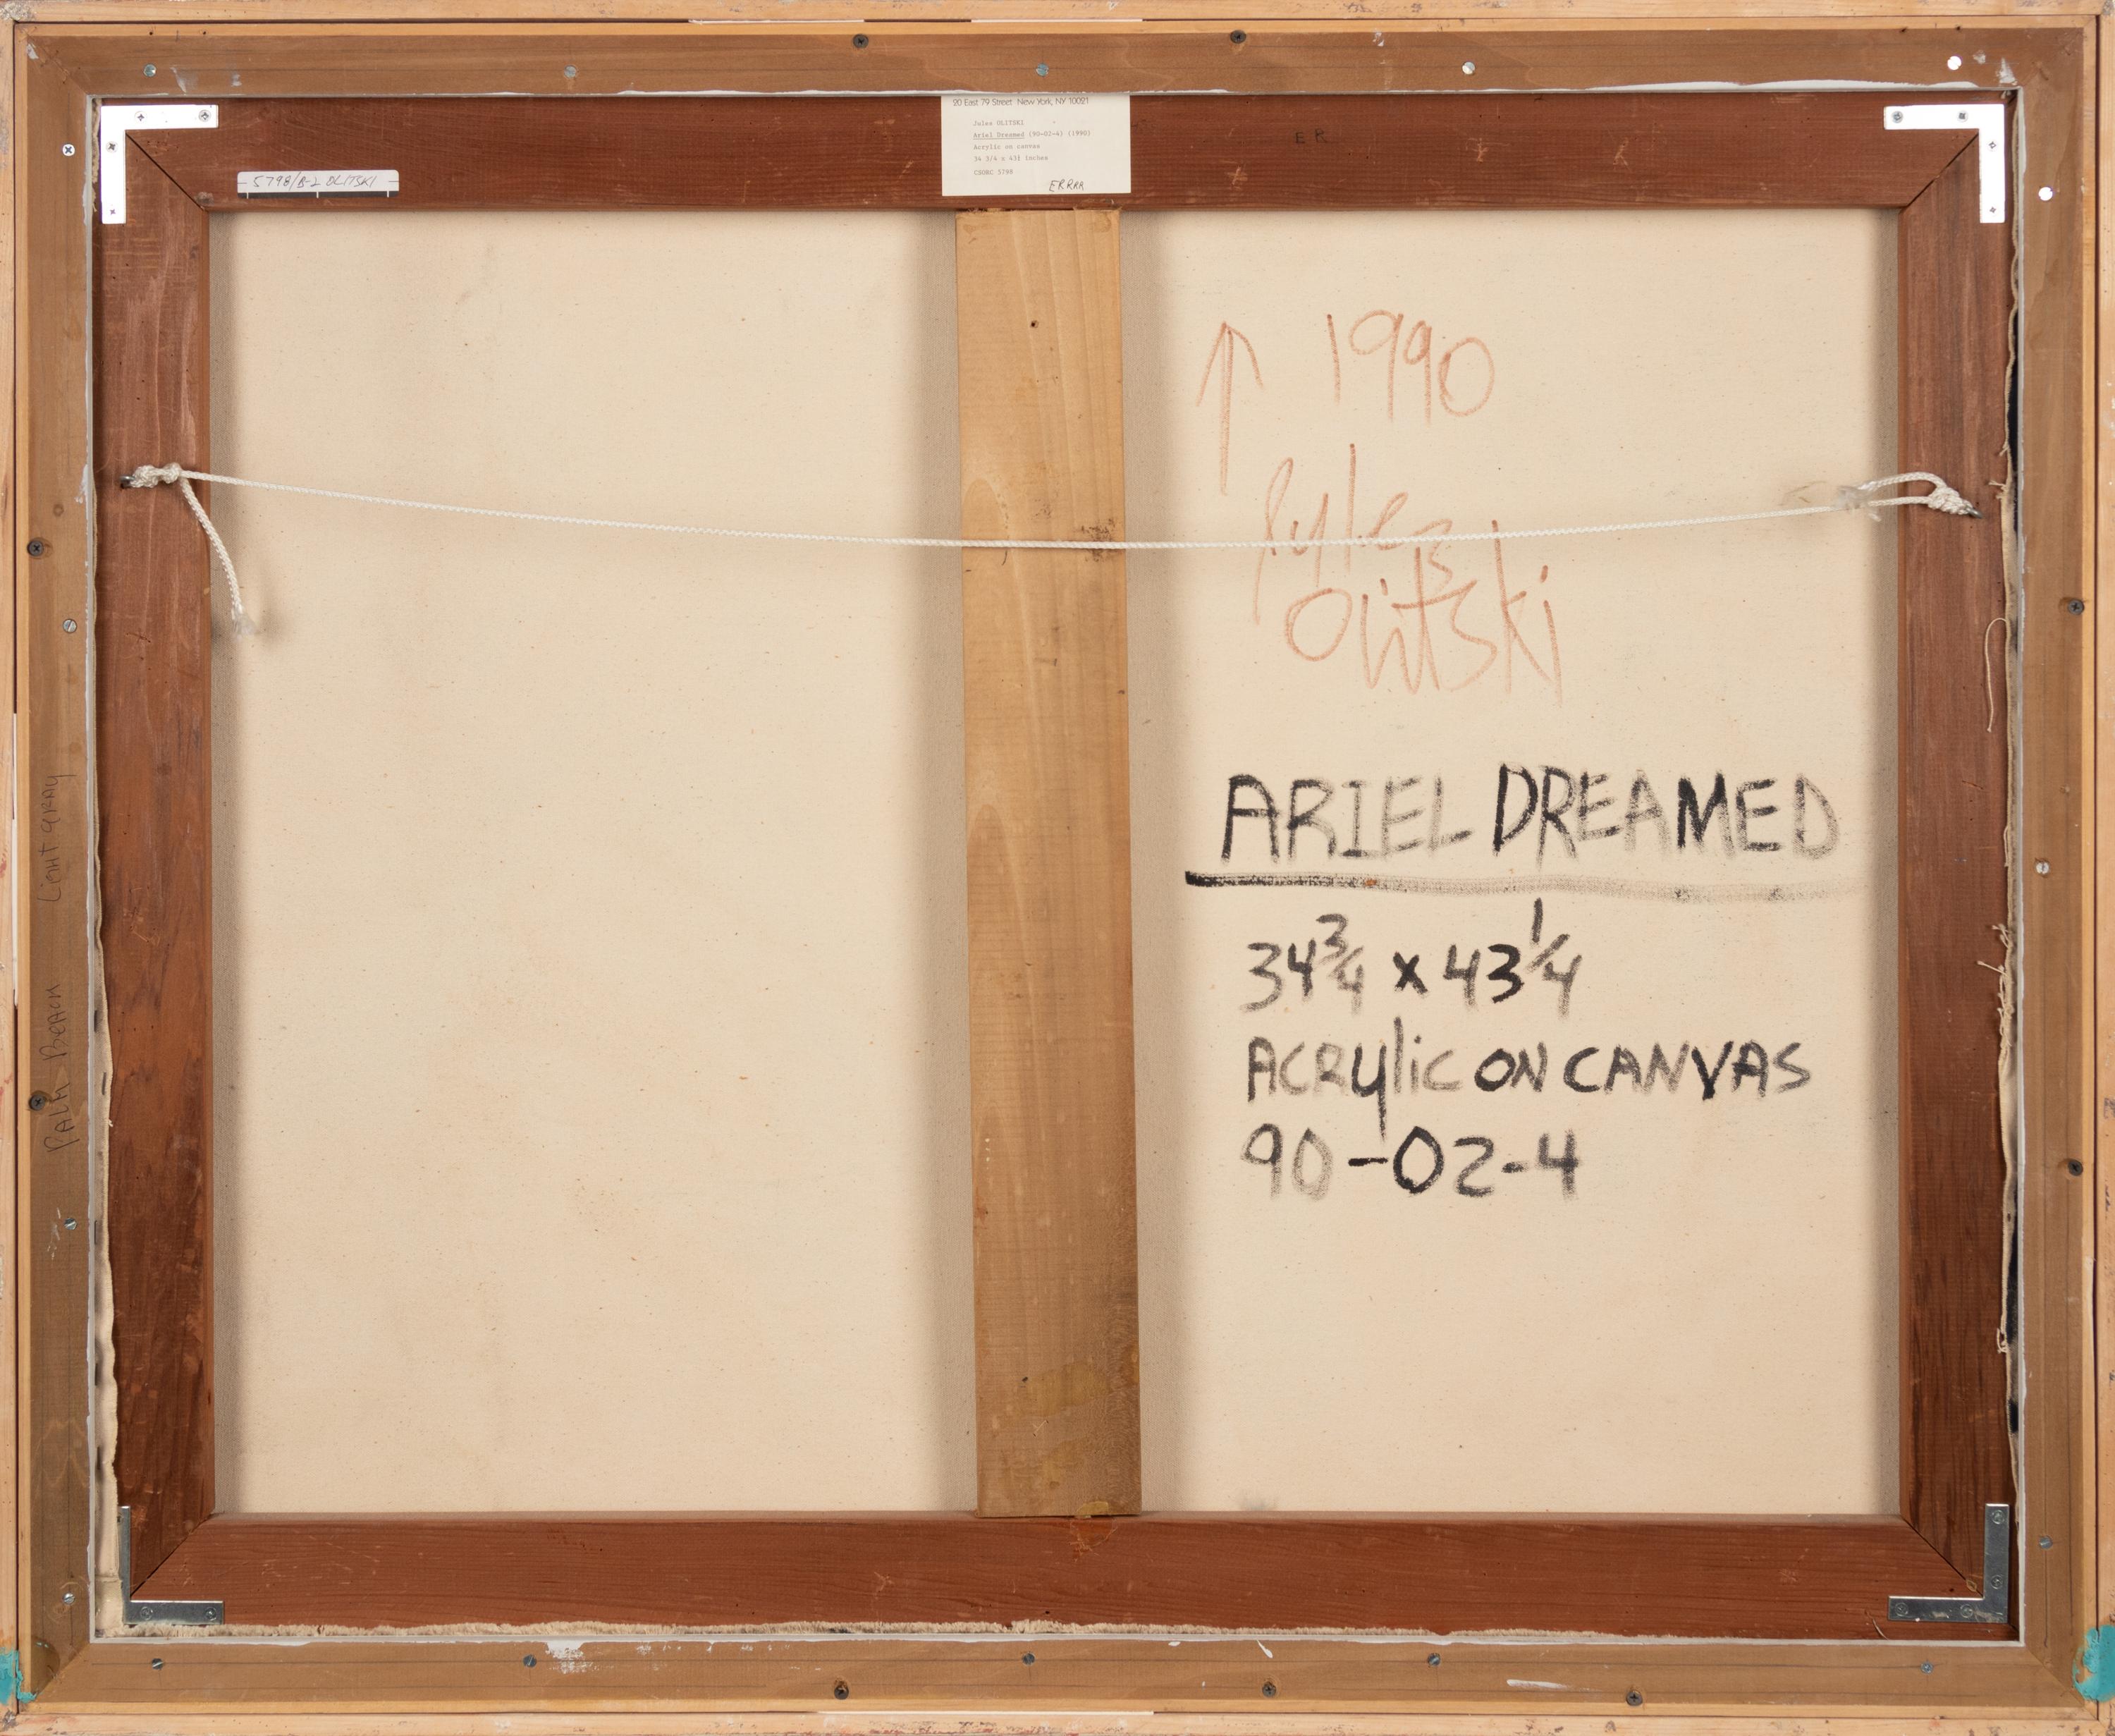 20 East 79 Street New York, NY 10021
Jules OLITSKI
Ariel Dreamed (90-02-4) (1990)
Acrylic on canvas
34 3/4 x 43¼ inches
CSORC 5798
ERRRR
ER
5798/B-2 OLITSKI
↑ 1990
Jules
Olitski
ARIEL DREAMED
34 3/4 x 43 1/4
ACRYLIC ON CANVAS
90-02-4
PALM BEACH LIGHT GRAY